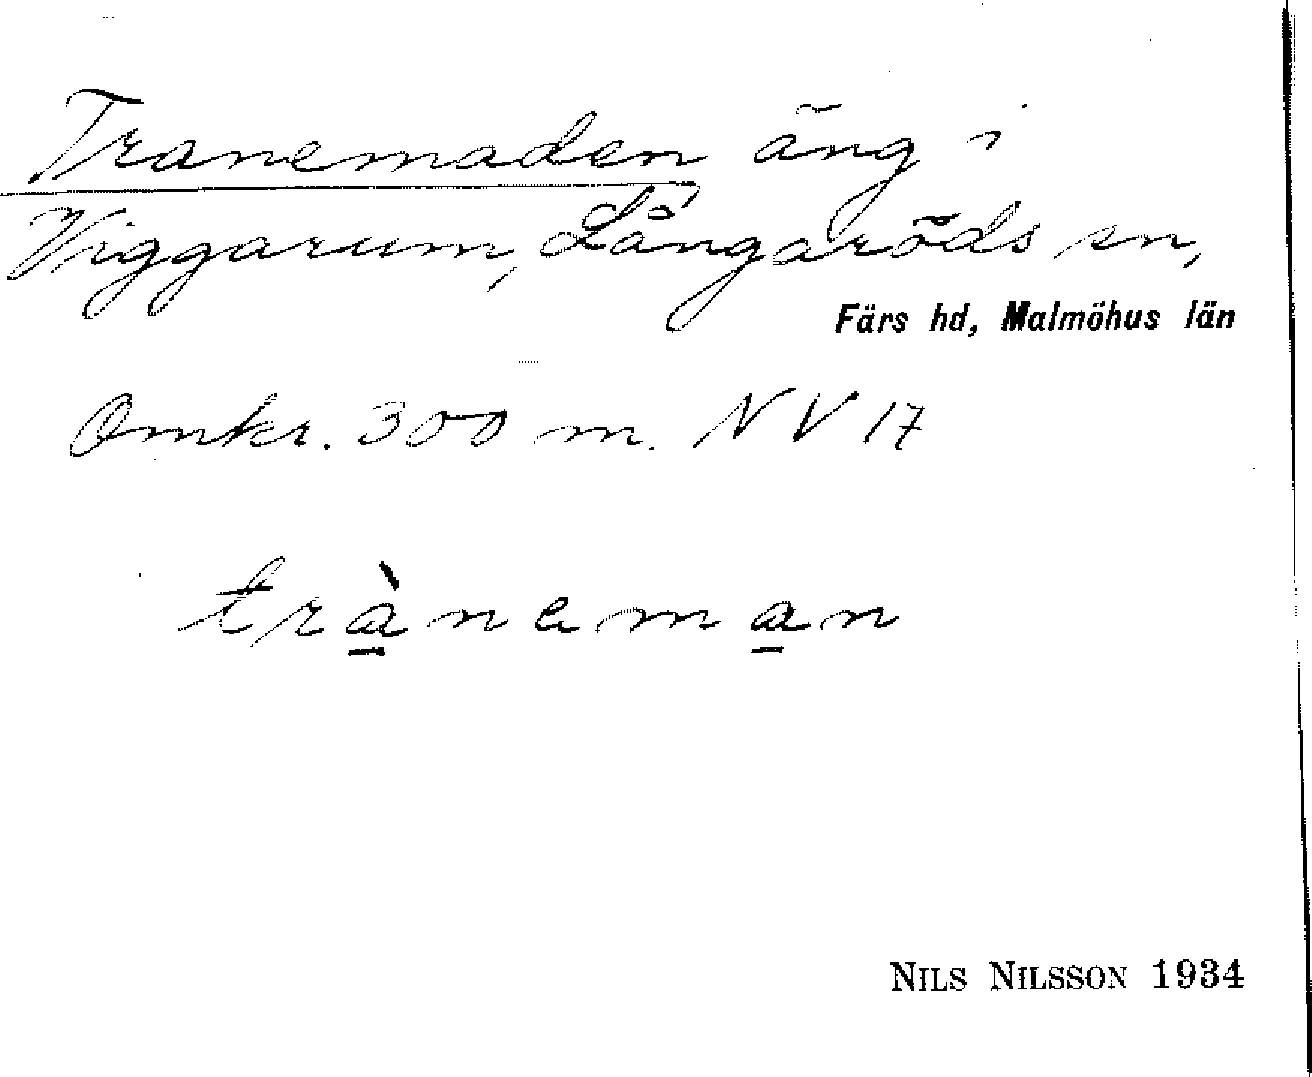 Tranemaden äng i
Viggarum, Långaröds sn,
Färs hd, Malmöhus län
Omkr. 300 m. NV 17
trà̱nema̱n
NILS NILSSON 1934